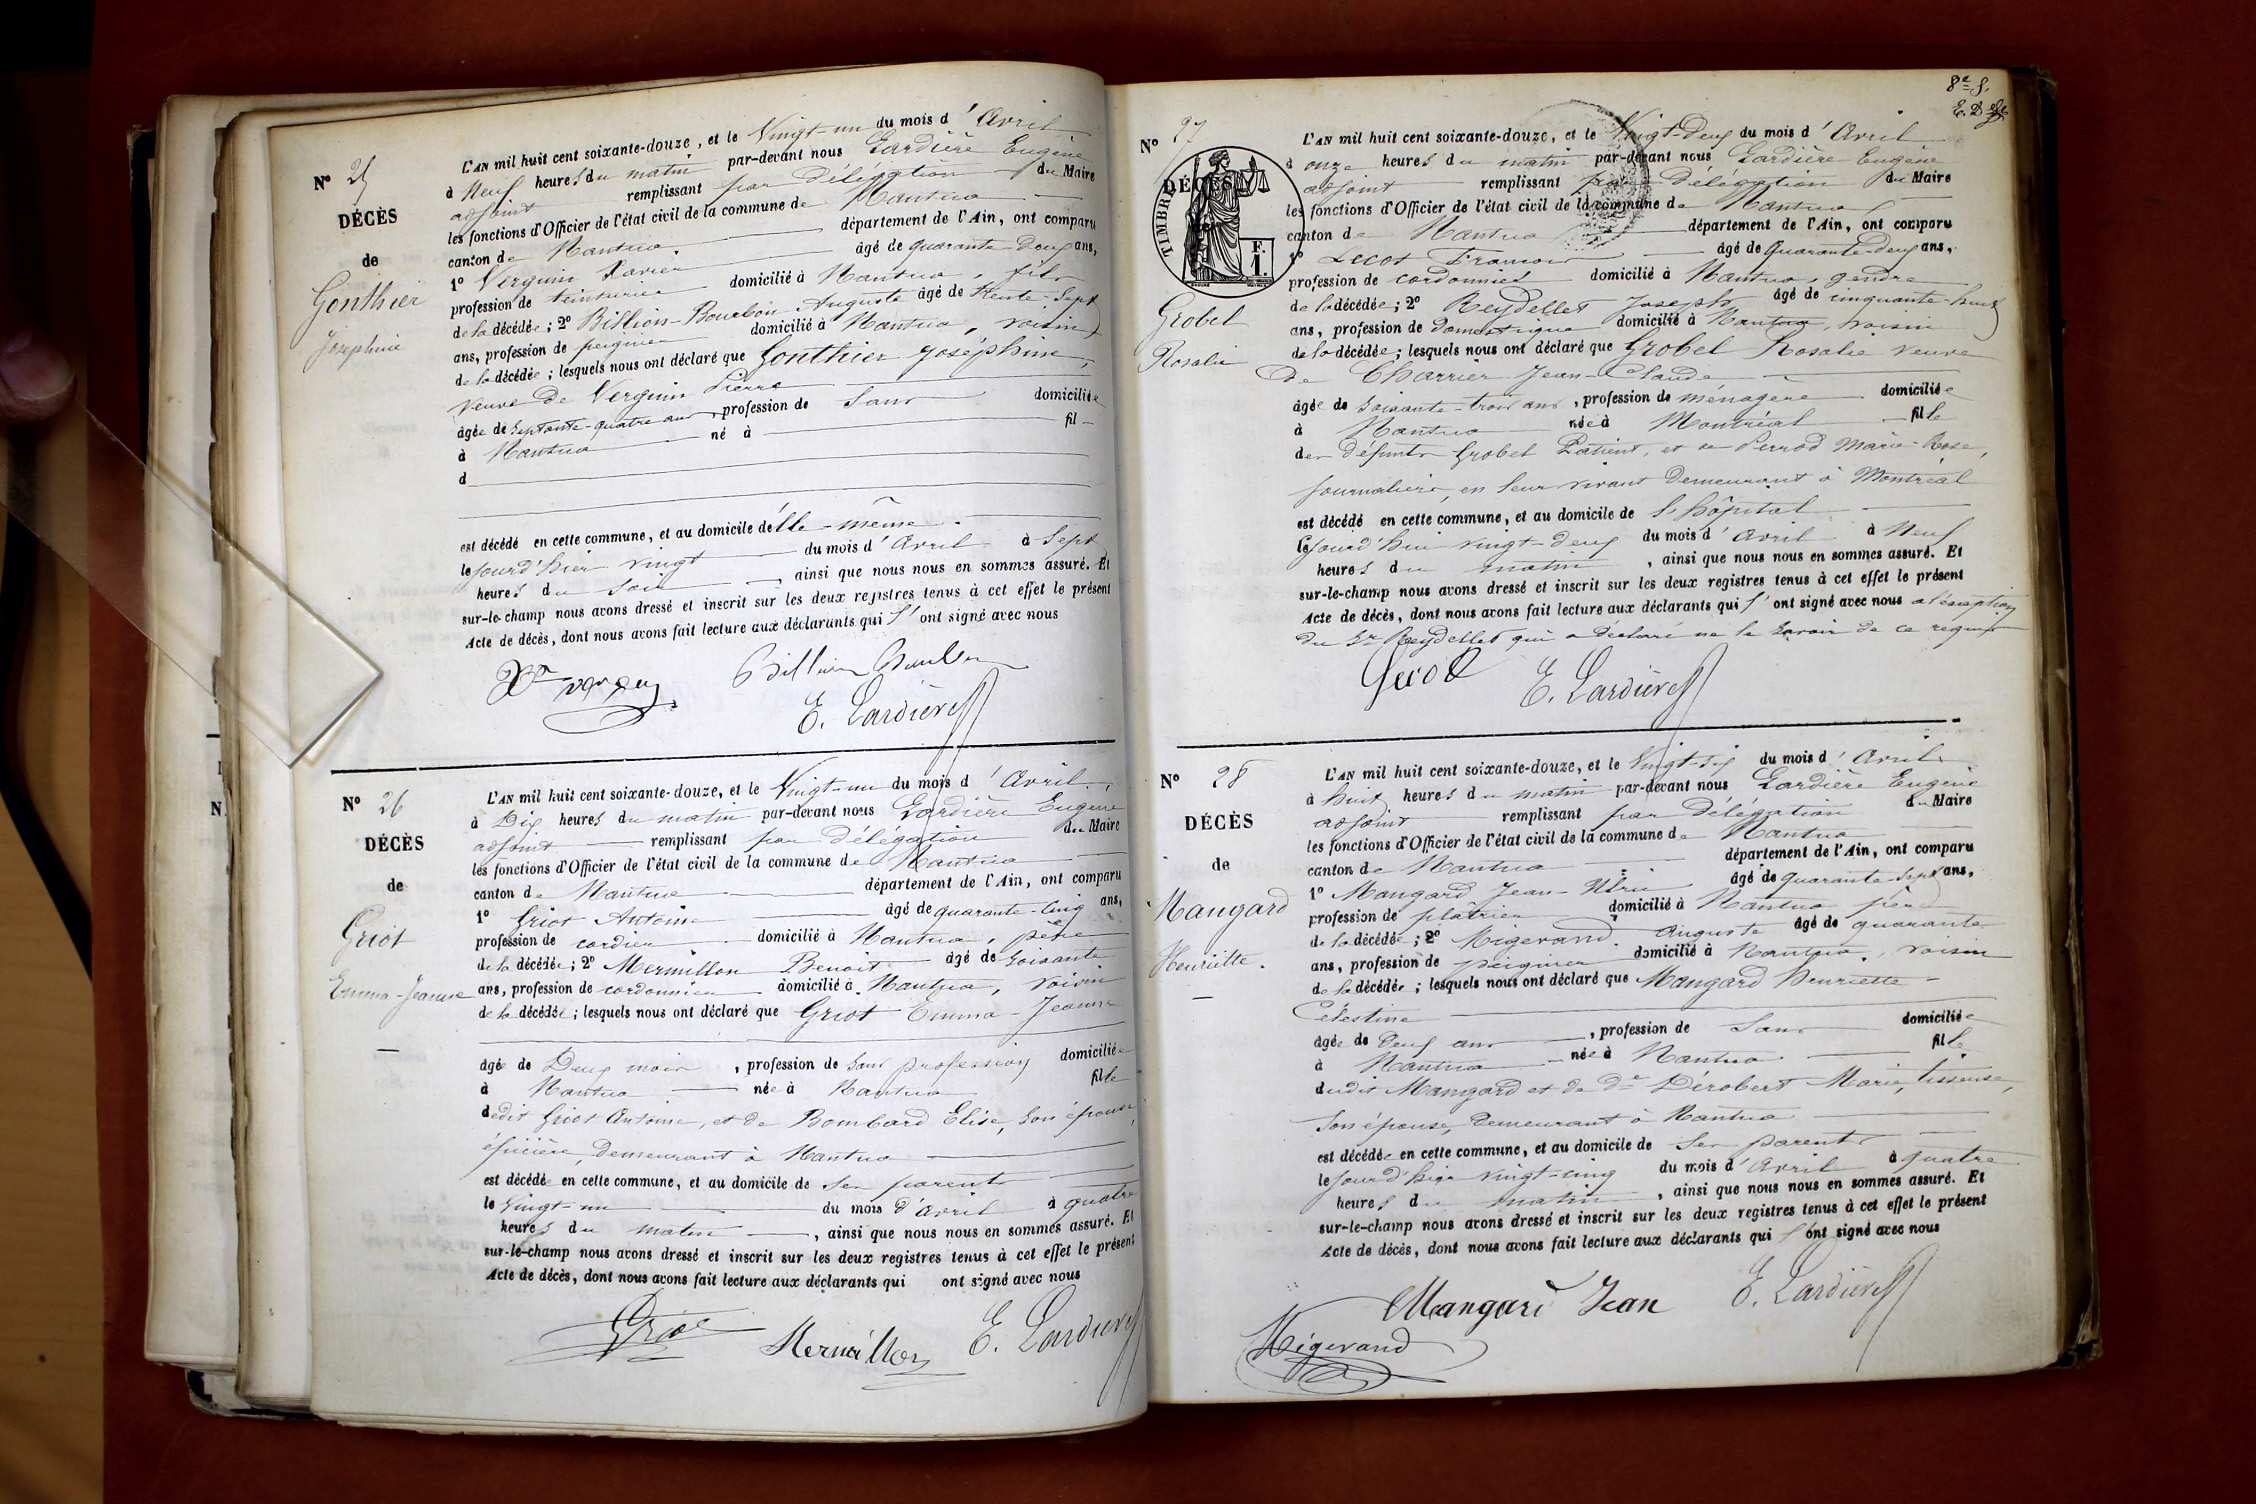 N° 25
DÉCÈS
de
Gonthier
Joséphine
L'AN mil huit cent soixante-douze, et le Vingt-un du mois d'Avril
à Neuf heures du matin par-devant nous Lardière Eugène
adjoint remplissant par Délégation du Maire
les fonctions d'Officier de l'état civil de la commune de Nantua
canton de Nantua département de l'Ain, ont comparu
1° Verguin Xavier âgé de quarante-deux ans,
profession de teinturier domicilié à Nantua, fils
de la décédée; 2° Billion-Bourbon Auguste âgé de trente-sept
ans, profession de peignier domicilié à Nantua, voisin
de la décédée; lesquels nous ont déclaré que Gonthier Joséphine,
veuve de Verguin Pierre
âgée de septante-quatre ans, profession de Sans domiciliée
à Nantua né à fil
d
est décédé en cette commune, et au domicile d'elle-même.
le jourd'hier vingt du mois d'Avril à Sept
heures du soir, ainsi que nous nous en sommes assuré. Et
sur-le-champ nous avons dressé et inscrit sur les deux registres tenus à cet effet le présent
Acte de décès, dont nous avons fait lecture aux déclarants qui l'ont signé avec nous
E. Lardière
N° 26
DÉCÈS
de
Griot
Emma-Jeanne
L'AN mil huit cent soixante-douze, et le Vingt-un du mois d'Avril,
à Dix heures du matin par-devant nous Lardière Eugène
adjoint remplissant par délégation du Maire
les fonctions d'Officier de l'état civil de la commune de Nantua
canton de Nantua département de l'Ain, ont comparu
1° Griot Antoine âgé de quarante-cinq ans,
profession de cordier domicilié à Nantua, père
de la décédée; 2° Mermillon Benoit âgé de soixante
ans, profession de cordonnier domicilié à Nantua, voisin
de la décédée; lesquels nous ont déclaré que Griot Emma-Jeanne
âgée de Deux mois, profession de sans profession domiciliée
à Nantua née à Nantua fille
dedit Griot Antoine, et de Bombard Elise, son épouse
épicière, demeurant à Nantua
est décédée en cette commune, et au domicile de ses parents
le Vingt-un du mois d'avril à quatre
heures du matin, ainsi que nous nous en sommes assuré. Et
sur-le-champ nous avons dressé et inscrit sur les deux registres tenus à cet effet le présent
Acte de décès, dont nous avons fait lecture aux déclarants qui ont signé avec nous
Griot Mermillon E. Lardière
8e f.
N° 27
DÉCÈS
TIMBRE
F.
1.
Grobel
Rosalie
L'AN mil huit cent soixante-douze, et le Vingt-Deux du mois d'Avril
à onze heures du matin par-devant nous Lardière Eugène
adjoint remplissant par délégation du Maire
les fonctions d'Officier de l'état civil de la commune de Nantua
canton de Nantua département de l'Ain, ont comparu
1° Lecot François âgé de Quarante-deux ans,
profession de cordonnier domicilié à Nantua, gendre
de la décédée; 2° Reydellet Joseph âgé de cinquante-huit
ans, profession de domestique domicilié à Nantua, voisin
de la décédée; lesquels nous ont déclaré que Grobel Rosalie veuve
de Charrier Jean-Claude
âgée de soixante-trois ans, profession de ménagère domiciliée
à Nantua née à Montréal fille
des défunts Grobel Patient, et de Perrod Marie-Rose,
journaliers, en leur vivant demeurant à Montréal
est décédé en cette commune, et au domicile de l'hôpital
le jourd'hui vingt-deux du mois d'Avril à Neuf
heures du matin, ainsi que nous nous en sommes assuré. Et
sur-le-champ nous avons dressé et inscrit sur les deux registres tenus à cet effet le présent
Acte de décès, dont nous avons fait lecture aux déclarants qui l'ont signé avec nous à l'exception
du Sr Reydellet qui a déclaré ne le savoir de ce requis
Lecot E. Lardière
N° 28
DÉCÈS
de
Mangard
Henriette.
L'AN mil huit cent soixante-douze, et le Vingt-Six du mois d'Avril
à huit heures du matin par-devant nous Lardière Eugène
adjoint remplissant par Délégation du Maire
les fonctions d'Officier de l'état civil de la commune de Nantua
canton de Nantua département de l'Ain, ont comparu
1° Mangard Jean- âgé de quarante-sept ans,
profession de plâtrier domicilié à Nantua père
de la décédée; 2° Migerand Auguste âgé de quarante
ans, profession de peignier domicilié à Nantua, voisin
de la décédée; lesquels nous ont déclaré que Mangard Henriette-
Célestine
âgée de Deux ans, profession de Sans domiciliée
à Nantua née à Nantua fille
dudit Mangard et de De Dérobert Marie, tisseuse,
son épouse, demeurant à Nantua
est décédée en cette commune, et au domicile de ses parents
le jourd'hier vingt-cinq du mois d'Avril à quatre
heures du matin, ainsi que nous nous en sommes assuré. Et
sur-le-champ nous avons dressé et inscrit sur les deux registres tenus à cet effet le présent
Acte de décès, dont nous avons fait lecture aux déclarants qui l'ont signé avec nous
Mangard Jean E. Lardière
Migerand